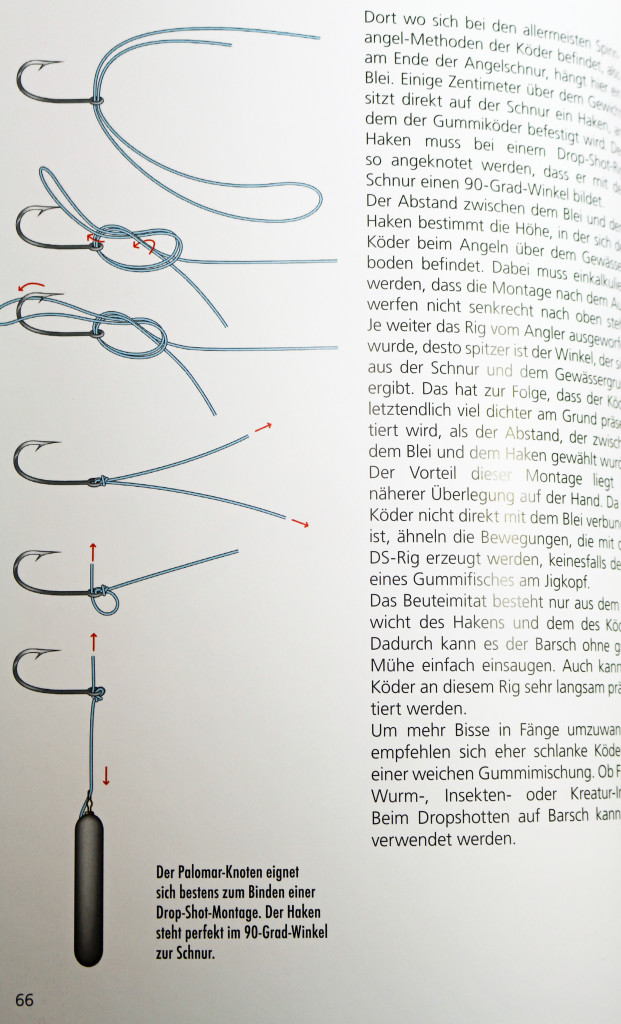 Dort wo sich bei den allermeisten Spinn-
angel-Methoden der Köder befindet, also
am Ende der Angelschnur, hängt hier ein
Blei. Einige Zentimeter über dem Gewicht
sitzt direkt auf der Schnur ein Haken, an
dem der Gummiköder befestigt wird. Der
Haken muss bei einem Drop-Shot-Rig
so angeknotet werden, dass er mit der
Schnur einen 90-Grad-Winkel bildet.
Der Abstand zwischen dem Blei und dem
Haken bestimmt die Höhe, in der sich der
Köder beim Angeln über dem Gewässer-
boden befindet. Dabei muss
werden, dass die Montage nach dem
werfen nicht senkrecht nach oben
Je weiter das Rig vom Angler
wurde, desto spitzer ist der Winkel, der
aus der Schnur und dem
ergibt. Das hat zur Folge, dass der
letztendlich viel dichter am Grund
tiert wird, als der Abstand, der
dem Blei und dem Haken gewählt
Der Vorteil dieser Montage liegt
näherer Überlegung auf der Hand. Da
Köder nicht direkt mit dem Blei
ist, ähneln die Bewegungen, die mit
DS-Rig erzeugt werden, keinesfalls
eines Gummifisches am Jigkopf.
Das Beuteimitat besteht nur aus dem
wicht des Hakens und dem des
Dadurch kann es der Barsch ohne
Mühe einfach einsaugen. Auch kann
Köder an diesem Rig sehr langsam
tiert werden.
Um mehr Bisse in Fänge
empfehlen sich eher schlanke
einer weichen Gummimischung. Ob
Wurm-, Insekten- oder
Beim Dropshotten auf Barsch
verwendet werden.
Der Palomar-Knoten eignet
sich bestens zum Binden einer
Drop-Shot-Montage. Der Haken
steht perfekt im 90-Grad-Winkel
zur Schnur.
66